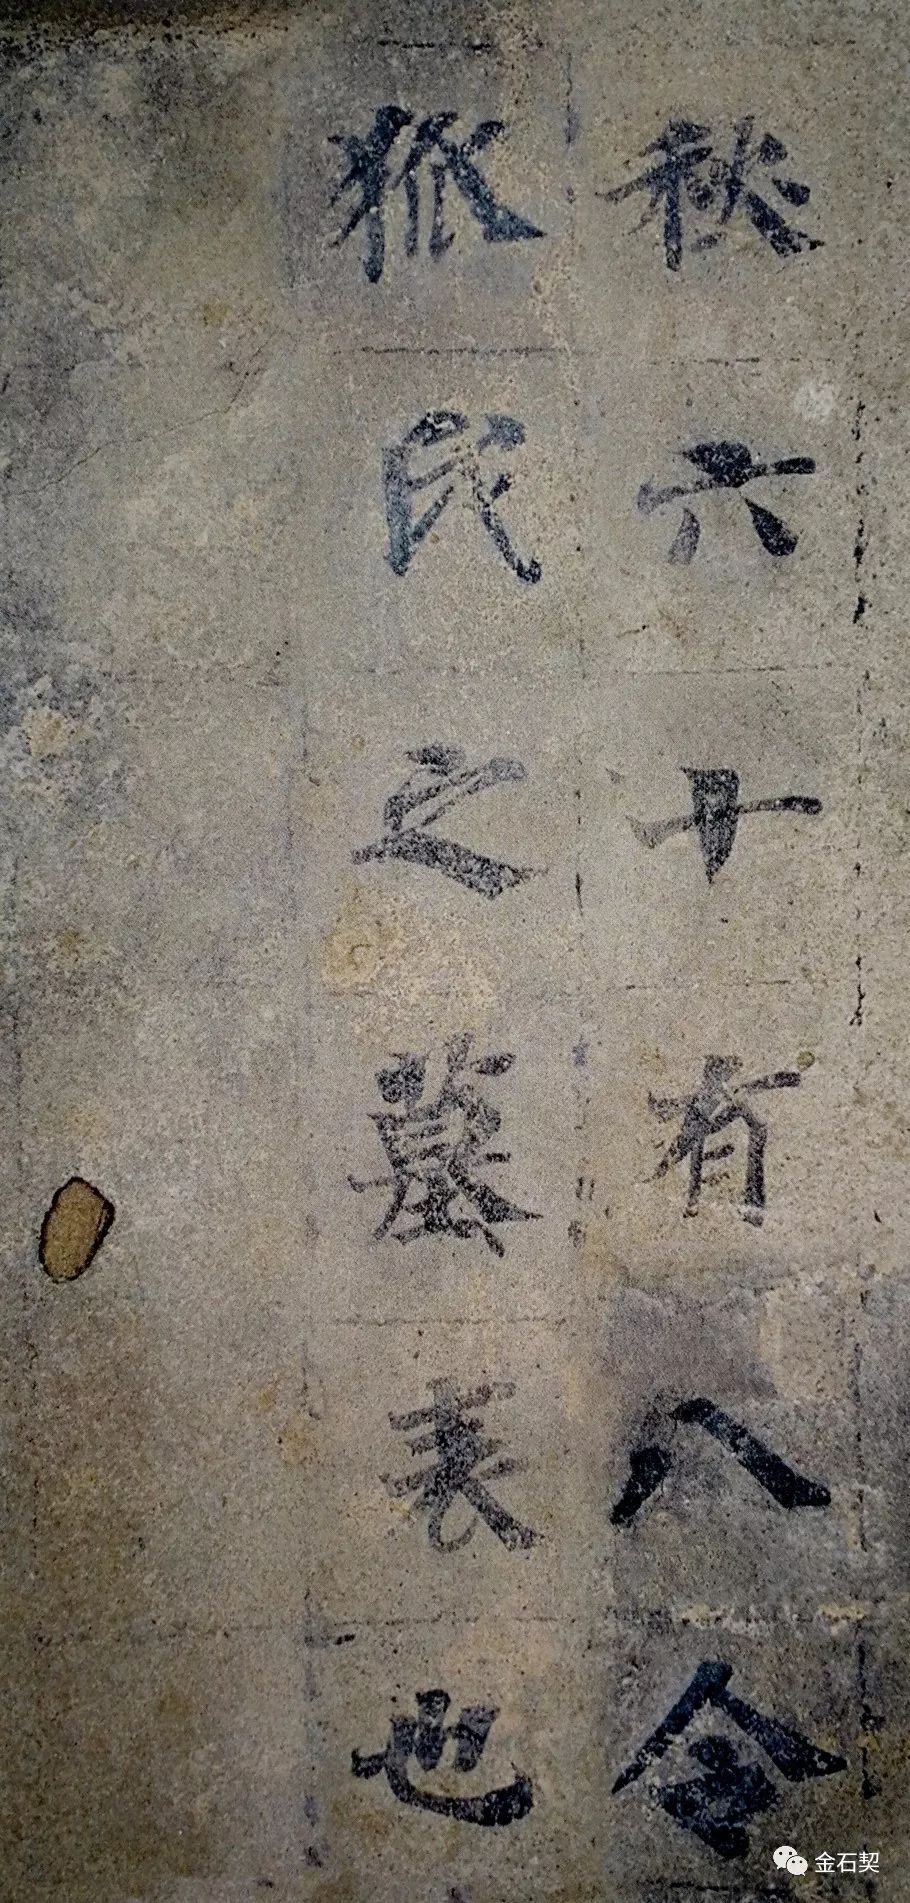 秋六十有八令
狐氏之墓表也
金石契